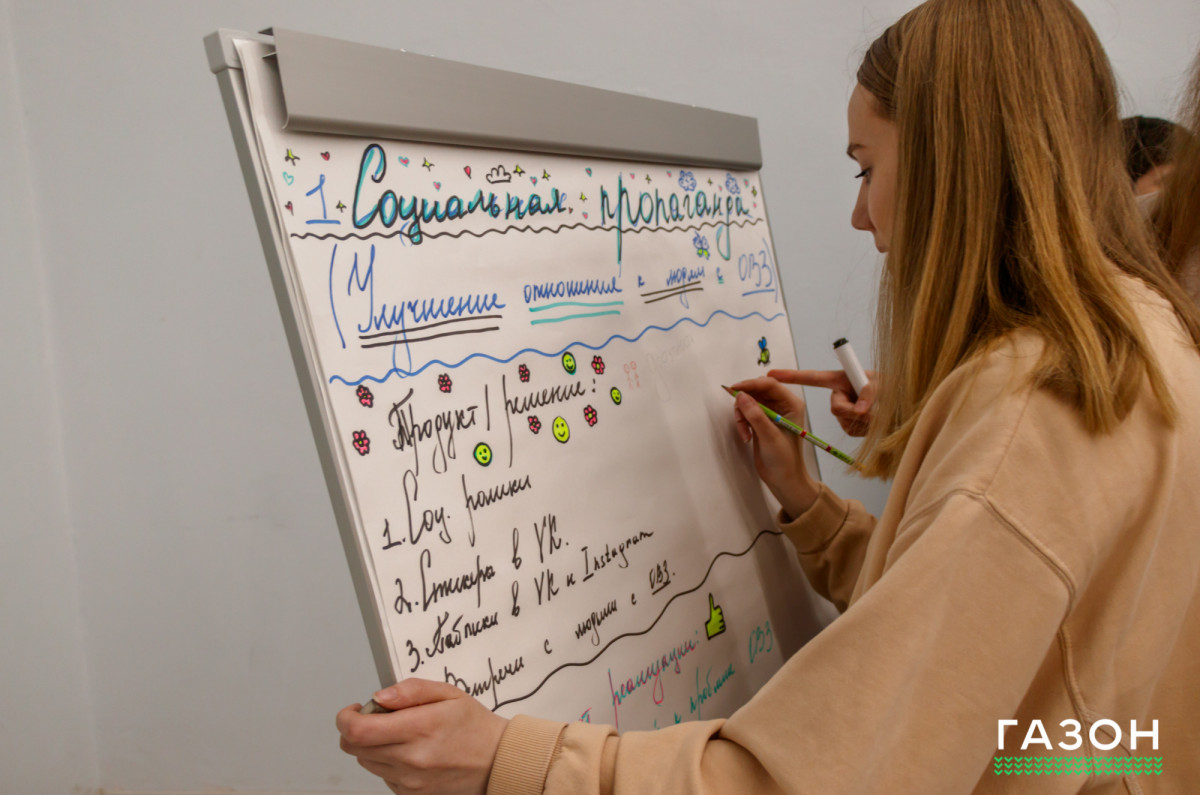 1 Социальная пропаганда
(Улучшение отношения к людям с ОВЗ)
Продукт/решение:
1. Соц. ролики
2. Стикера в VK.
3. Паблики в VK и Instagram
Встречи с людьми с ОВЗ.
реализации:
к проблеме ОВЗ
ГАЗОН